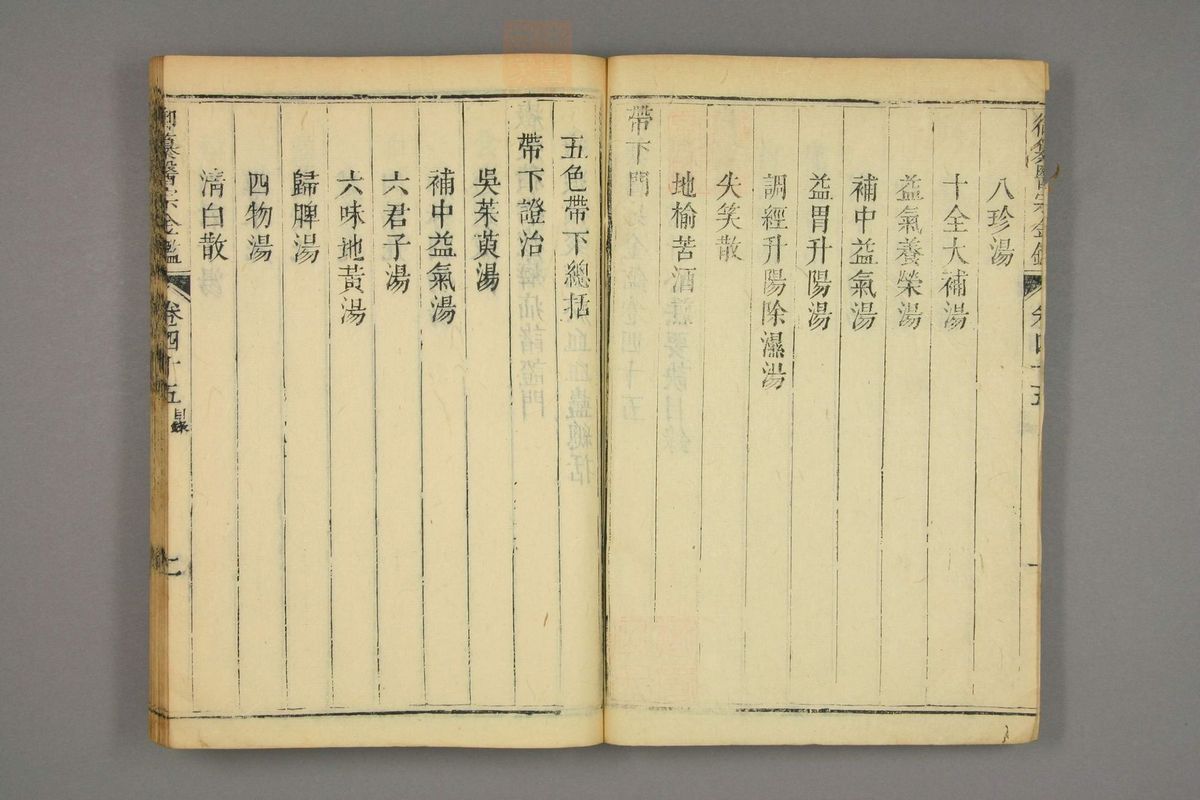 八珍湯
十全大補湯
益氣養榮湯
補中益氣湯
益胃升陽湯
調經升陽除濕湯
失笑散
地榆苦酒
帶下門
五色帶下總括
帶下證治
吳茱萸湯
補中益氣湯
六君子湯
六味地黃湯
歸脾湯
四物湯
清白散
御纂醫宗金鑑
卷四十五
目錄